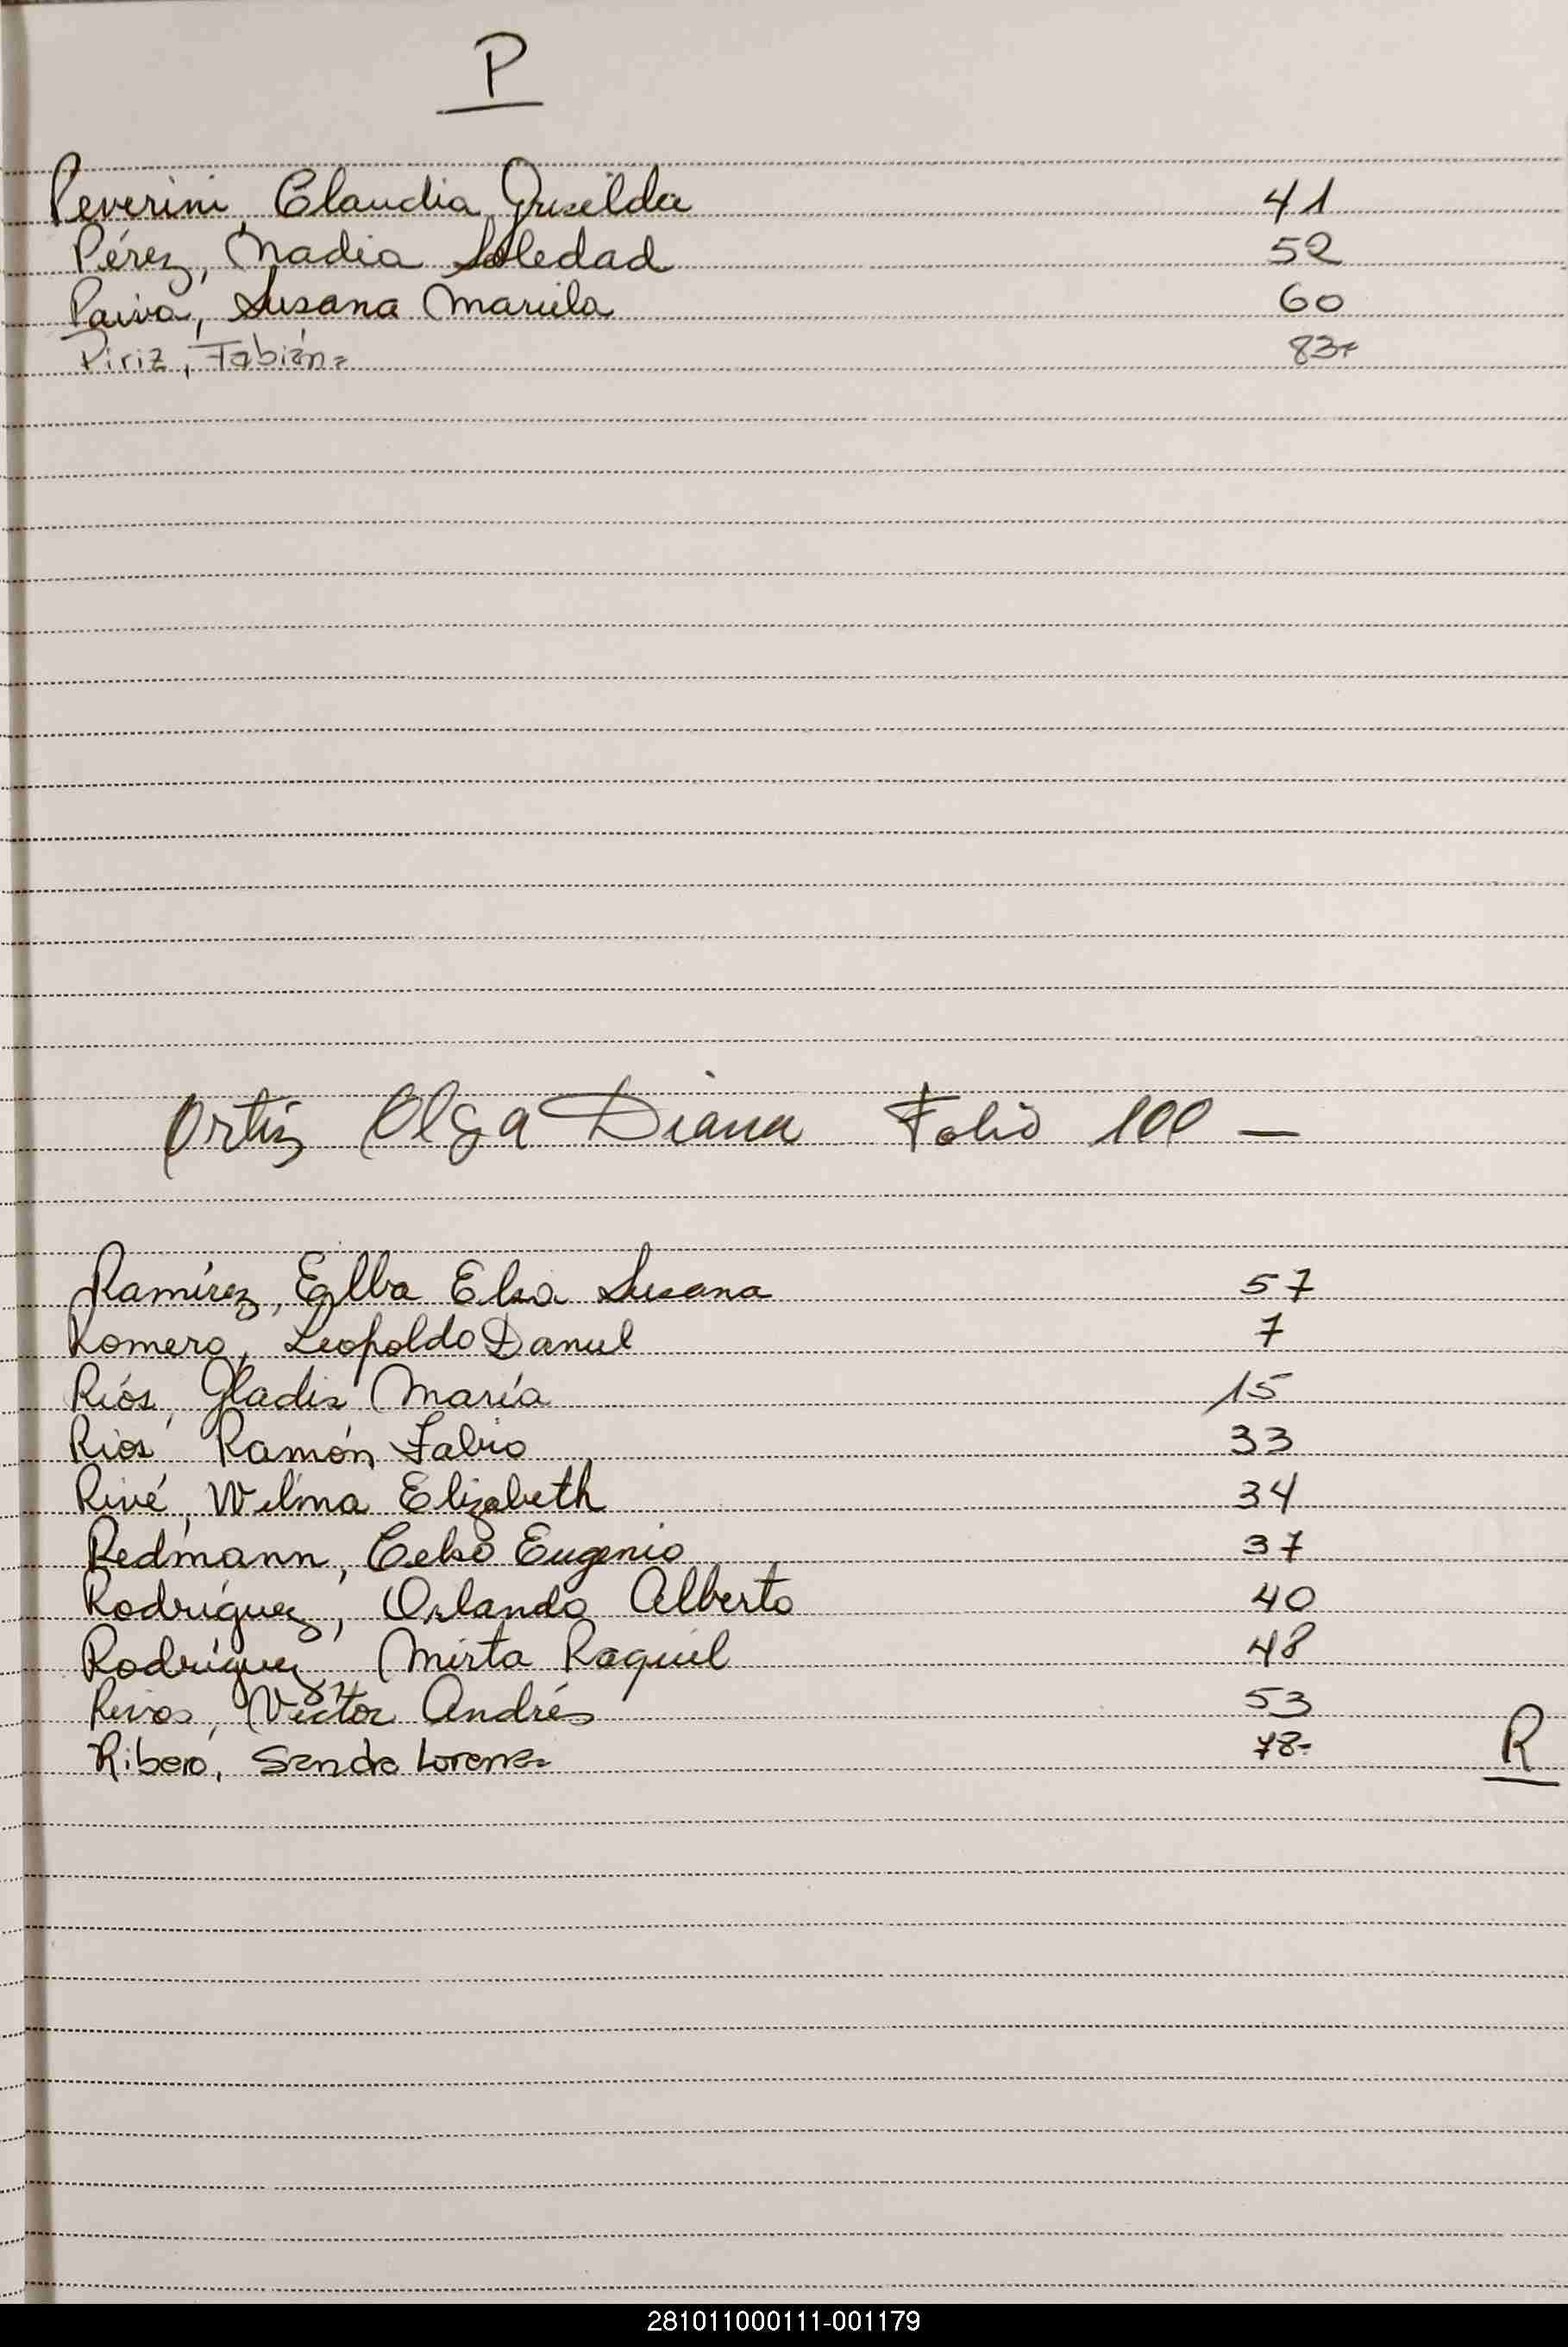 P
Peverini, Claudia Griselda 41
Pérez, Nadia Soledad 52
Paiva, Susana Mariela 60
Piriz, Fabián= 83=
Ortiz Olga Diana Folio 100 —
Ramírez, Elba Elsa Susana 57
Romero, Leopoldo Daniel 7
Ríos, Gladis María 15
Ríos, Ramón Fabio 33
Rivé, Wilma Elizabeth 34
Redmann, Celso Eugenio 37
Rodríguez, Orlando Alberto 40
Rodríguez, Mirta Raquel 48
Rivas, Víctor Andrés 53
Ribero, Sandra Lorena= 78=
R
281011000111-001179